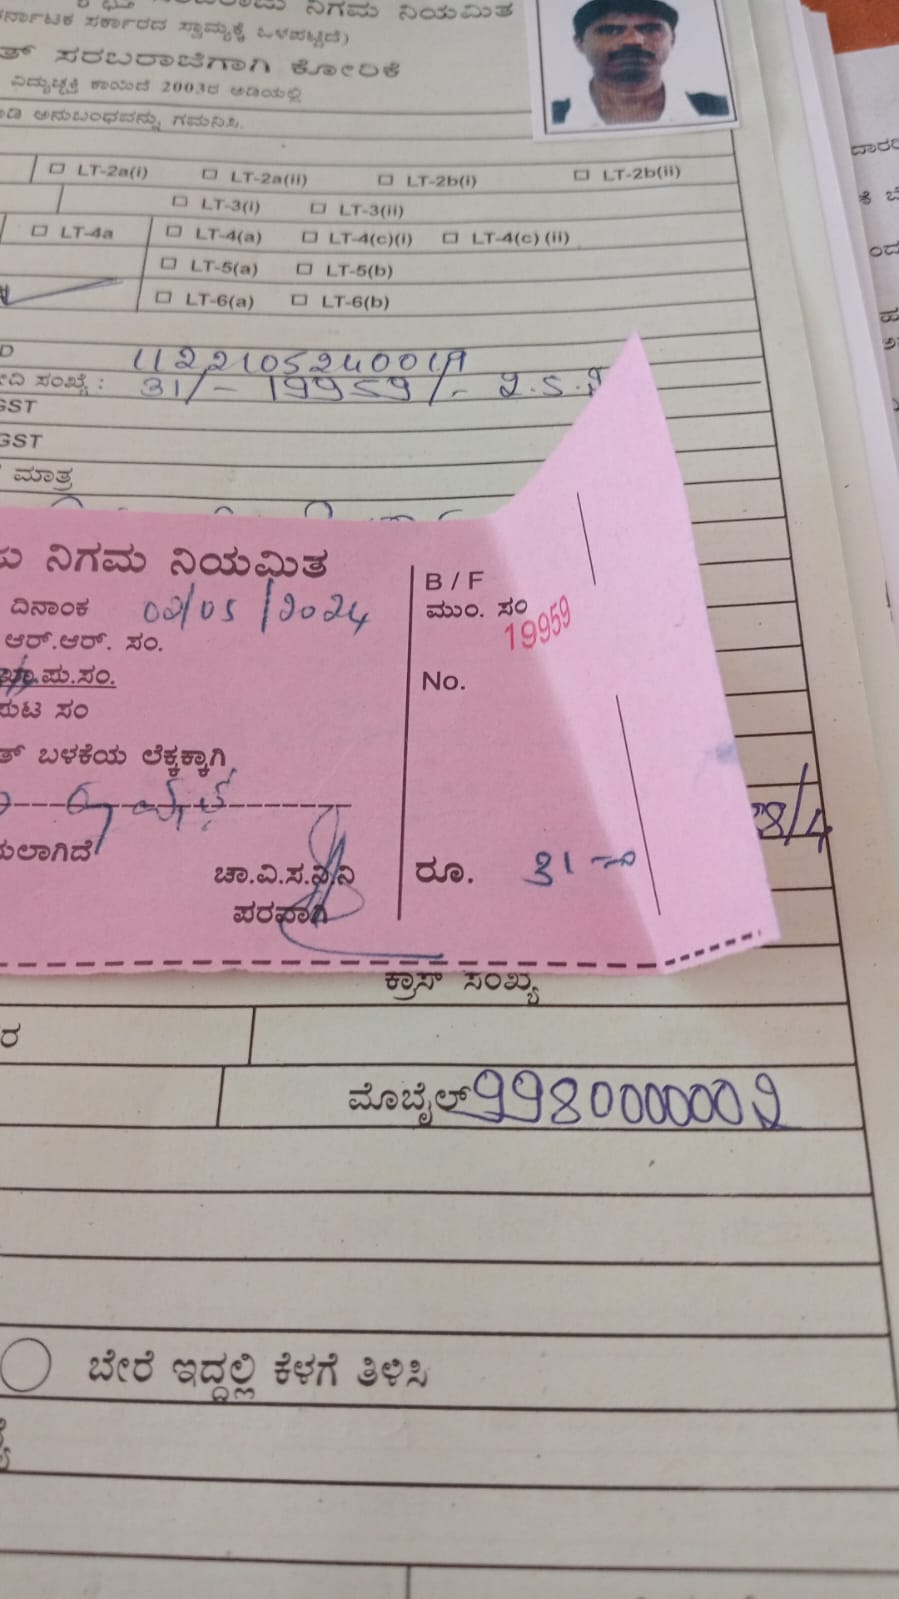 ನಿಗಮ ನಿಯಮಿತ
ಕರ್ನಾಟಕ ಸರ್ಕಾರದ ಸ್ವಾಮ್ಯಕ್ಕೆ ಒಳಪಟ್ಟಿದೆ)
ಸರಬರಾಜಿಗಾಗಿ ಕೋರಿಕೆ
ವಿದ್ಯುಚ್ಛಕ್ತಿ ಕಾಯಿದೆ 2003ರ ಅಡಿಯಲ್ಲಿ
ಅನುಬಂಧವನ್ನು ಗಮನಿಸಿ.
LT-2a(i) LT-2a(ii) LT-2b(i) LT-2b(ii)
LT-3(i) LT-3(ii)
LT-4a LT-4(a) LT-4(c)(i) LT-4(c) (ii)
LT-5(a) LT-5(b)
LT-6(a) LT-6(b)
ಸಂಖ್ಯೆ : 31/- 19959/-
GST
GST
ಮಾತ್ರ
ನಿಗಮ ನಿಯಮಿತ
ದಿನಾಂಕ 02/05/2024
ಆರ್.ಆರ್. ಸಂ.
ಪು.ಸಂ.
ಪುಟ ಸಂ
ಬಳಕೆಯ ಲೆಕ್ಕಕ್ಕಾಗಿ
ಚಾ.ವಿ.ಸ.ನಿ.ನಿ
ಪರವಾಗಿ
B / F
ಮುಂ. ಸಂ
19959
No.
ರೂ. 31
28/4
ಕ್ರಾಸ್ ಸಂಖ್ಯೆ
ಮೊಬೈಲ್ 9980000002
ಬೇರೆ ಇದ್ದಲ್ಲಿ ಕೆಳಗೆ ತಿಳಿಸಿ